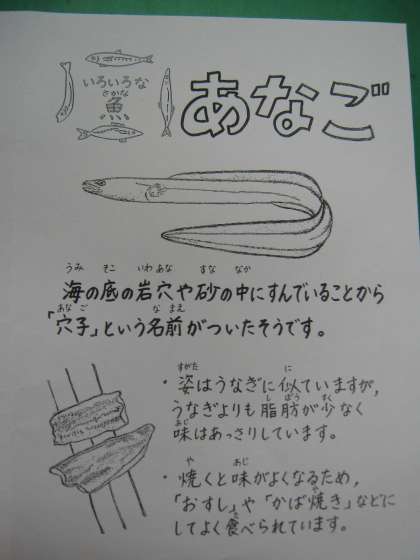 いろいろな
さかな
魚
あなご
うみ そこ いわ あな すな なか
海の底の岩穴や砂の中にすんでいることから
あな ご な まえ
「穴子」という名前がついたそうです。
すがた に
・姿はうなぎに似ていますが，
し ぼう すく
うなぎよりも脂肪が少なく
あじ
味はあっさりしています。
や あじ
・焼くと味がよくなるため，
や
「おすし」や「かば焼き」などに
た
してよく食べられています。